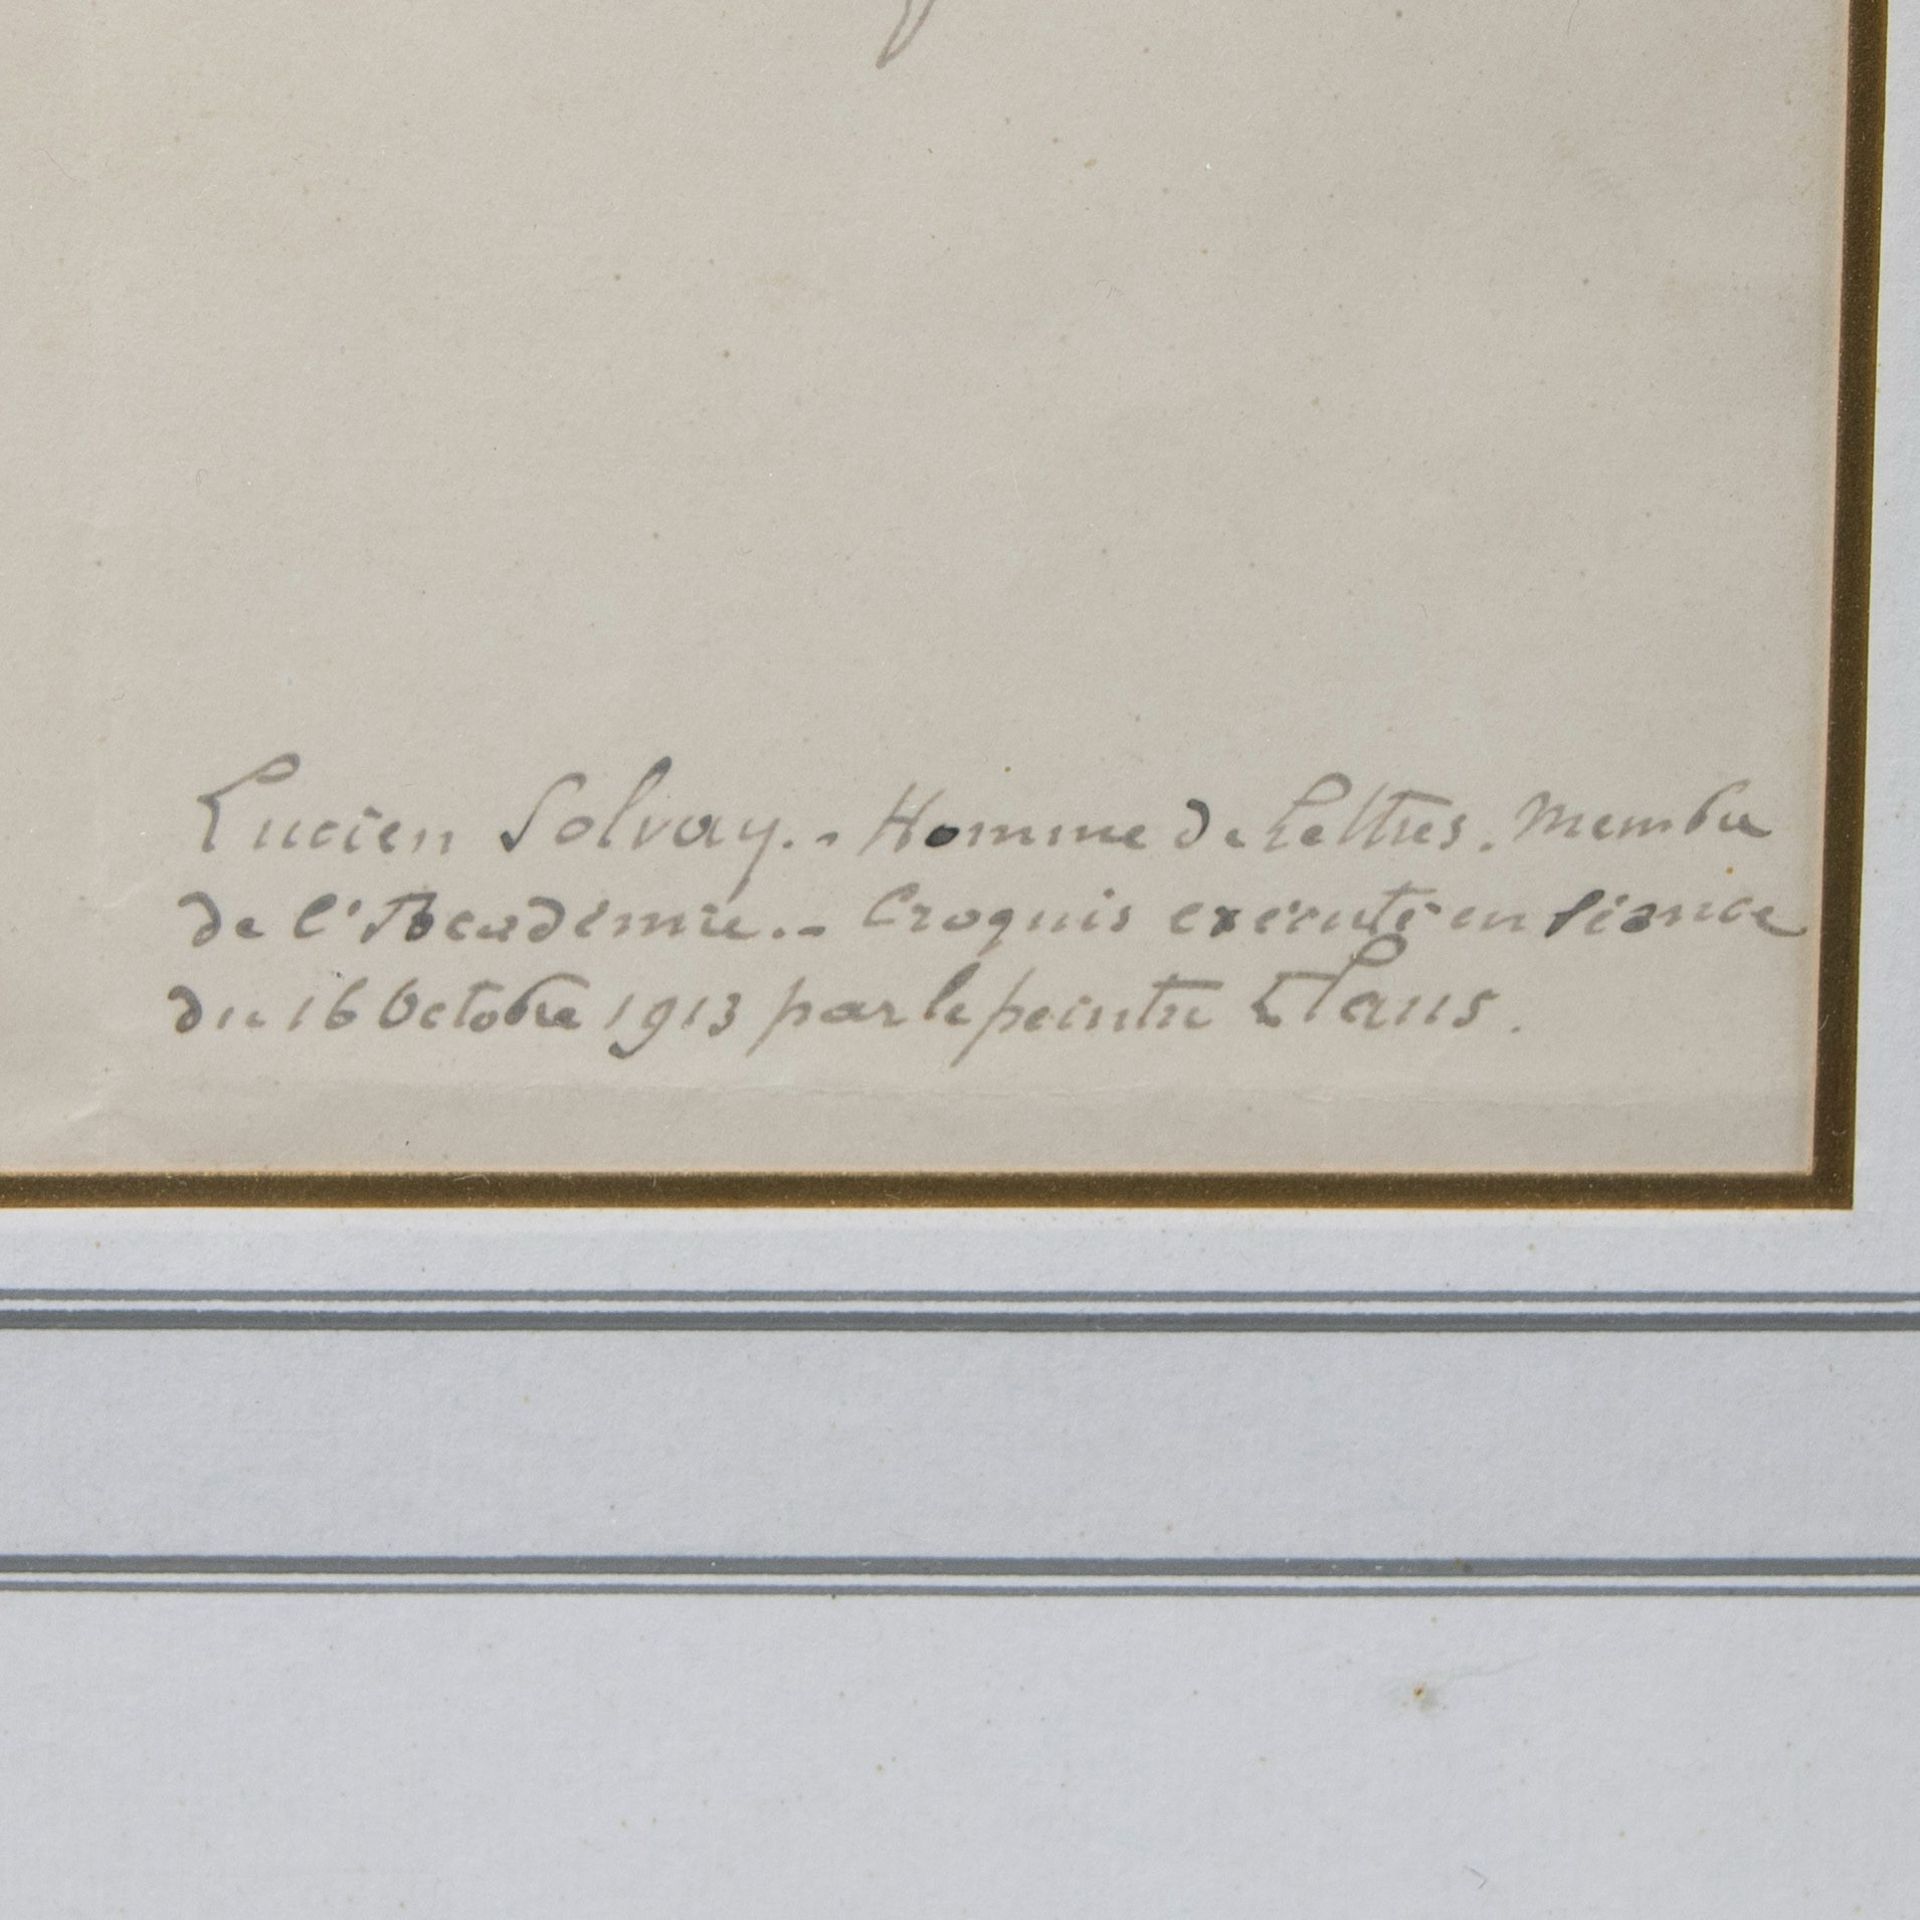 Lucien Solvay.- Homme de Lettres. Membre
de l'Académie.- Croquis exécuté en séance
du 16 Octobre 1913 par le peintre Claus.